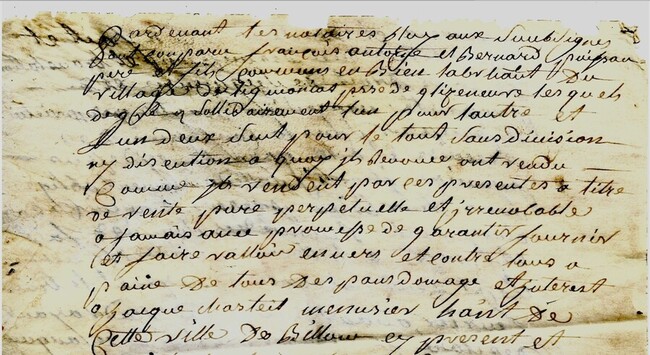 Pardevant les notaires Royaux aux Soubsignes
sont comparu françois antoine et Bernard
pere et fils communs en Bien labritant Du
village de psse de glizeneuve les quels
de gre et Sollidairement lun pour lautre et
lun deux Seul pour le tout Sans division
ny discution a quoy ils ont vendu
Comme ils vendent par ces presentes a titre
de vente pure perpetuelle et irrevocable
a jamais avec promesse de garantir fournir
et faire valloir envers et contre tous a
paine De tous Des pans domage et interest
a jaque chasteit menusier habt De
Cette ville De Billom cy present et